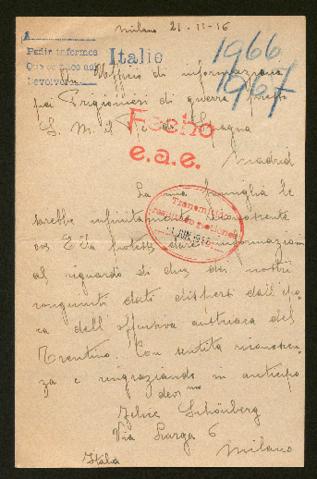 Milano 21-11-16
Pedir informes
Italie
1966
1967
Devolver
Ufficio di informazioni
pei Prigionieri di guerra presso
S. M. il Re di Spagna
Fecho
e.a.e.
Madrid
La mia famiglia le
sarebbe infinitamente riconoscente
se Ella potesse dare informazioni
al riguardo di due dei nostri
congiunti dati dispersi dall'epo-
ca dell'offensiva austriaca del
Trentino. Con sentita riconoscen-
za e ringraziando in anticipo
dev mo
Schönberg
Via Larga 6
Milano
Italia